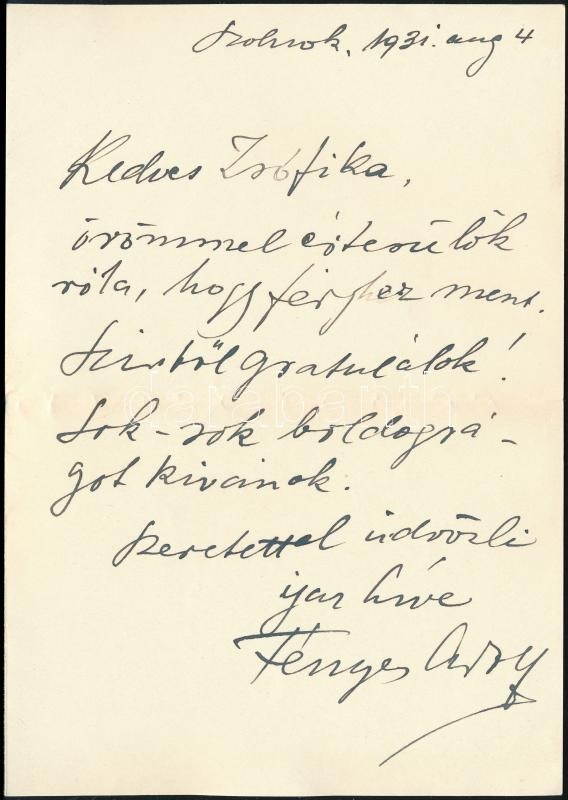 Szolnok, 1931. aug 4
Kedves Zsófika,
örömmel értesülök
róla, hogy férjhez ment.
Szívből gratulálok!
Sok-sok boldogsá-
got kívánok.
Szeretettel üdvözli
igaz híve
Fényes Adolf
darabanth